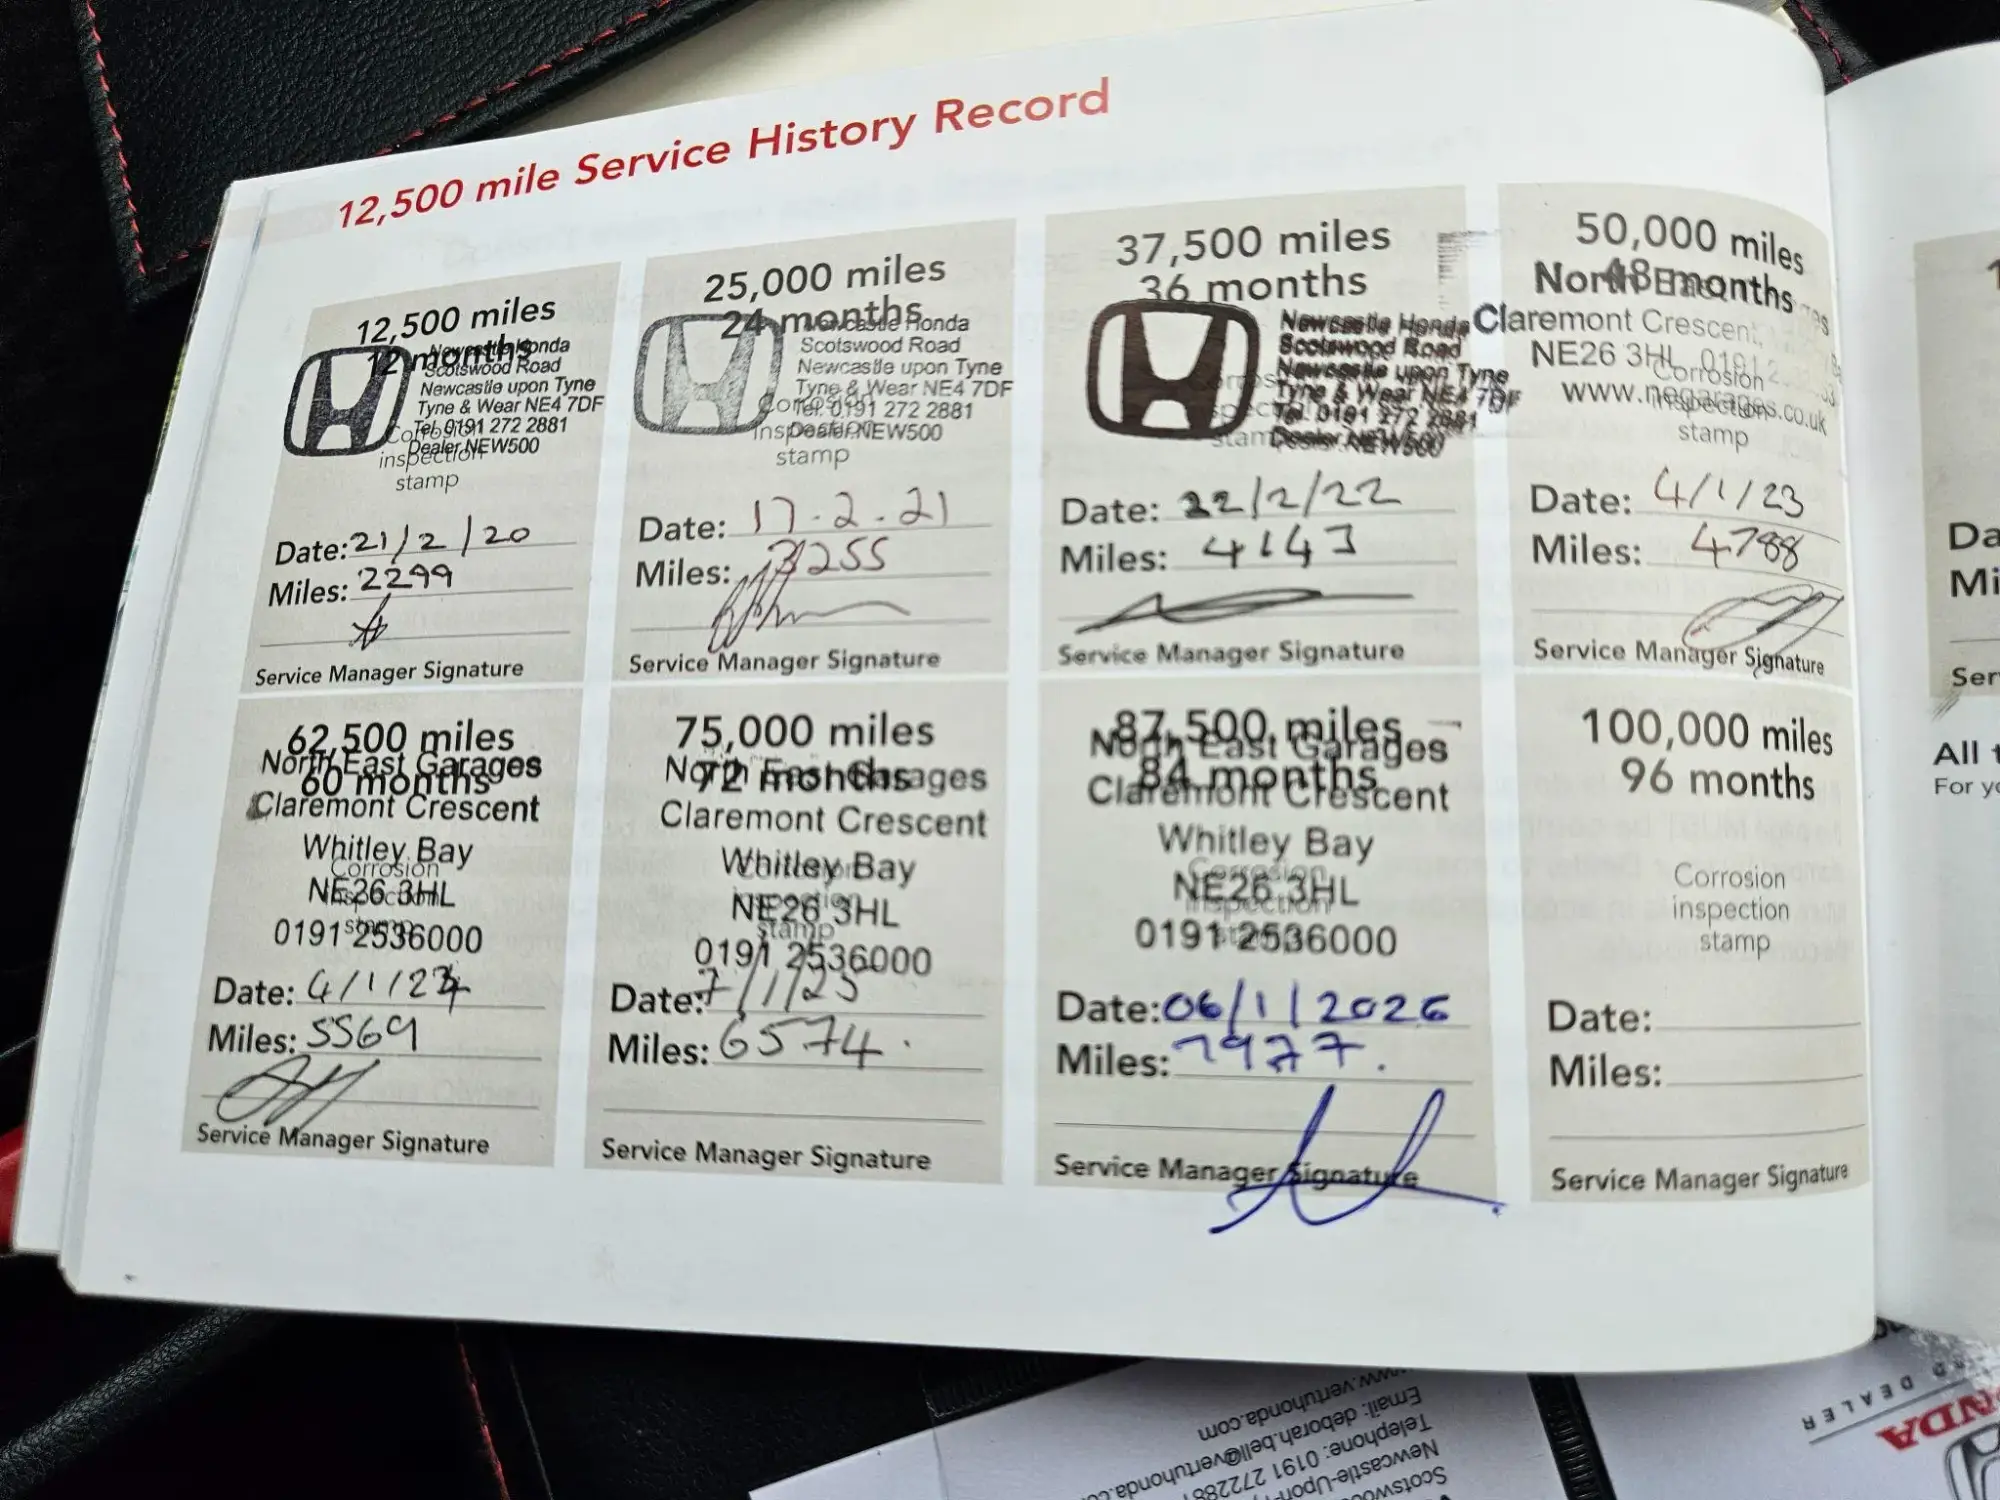 12,500 mile Service History Record
12,500 miles
12 months
Newcastle Honda
Scotswood Road
Newcastle upon Tyne
Tyne & Wear NE4 7DF
Tel. 0191 272 2881
Dealer.NEW500
Corrosion
inspection
stamp
Date: 21/2/20
Miles: 2299
Service Manager Signature
25,000 miles
24 months
Newcastle Honda
Scotswood Road
Newcastle upon Tyne
Tyne & Wear NE4 7DF
Tel. 0191 272 2881
Dealer.NEW500
Corrosion
inspection
stamp
Date: 17.2.21
Miles: 3255
Service Manager Signature
37,500 miles
36 months
Newcastle Honda
Scotswood Road
Newcastle upon Tyne
Tyne & Wear NE4 7DF
Tel. 0191 272 2881
Dealer.NEW500
Date: 22/2/22
Miles: 4143
Service Manager Signature
50,000 miles
48 months
North
Claremont Crescent,
NE26 3HL 0191
www.negarages.co.uk
Corrosion
inspection
stamp
Date: 4/1/23
Miles: 4788
Service Manager Signature
62,500 miles
60 months
North East Garages
Claremont Crescent
Whitley Bay
NE26 3HL
0191 2536000
Corrosion
inspection
stamp
Date: 4/1/24
Miles: 5569
Service Manager Signature
75,000 miles
72 months
North East Garages
Claremont Crescent
Whitley Bay
NE26 3HL
0191 2536000
Corrosion
inspection
stamp
Date: 7/1/25
Miles: 6574.
Service Manager Signature
87,500 miles
84 months
North East Garages
Claremont Crescent
Whitley Bay
NE26 3HL
0191 2536000
Corrosion
inspection
stamp
Date: 06/1/2026
Miles: 7977.
Service Manager Signature
100,000 miles
96 months
Corrosion
inspection
stamp
Date:
Miles:
Service Manager Signature
Da
Mi
Ser
All
For yo
DEALER
Newcastle-Upon-
Telephone: 0191 272288
Email: deborah.bell@vertuhonda.co
www.vertuhonda.com